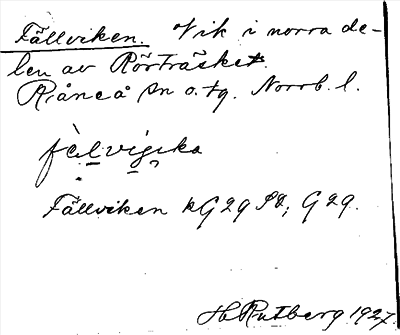 Fällviken. Vik i norra de-
len av Rörträsket.
Råneå sn o. tg. Norrb. l.
Fällviken kG29 Sv; G29.
Hd Rutberg 1927.